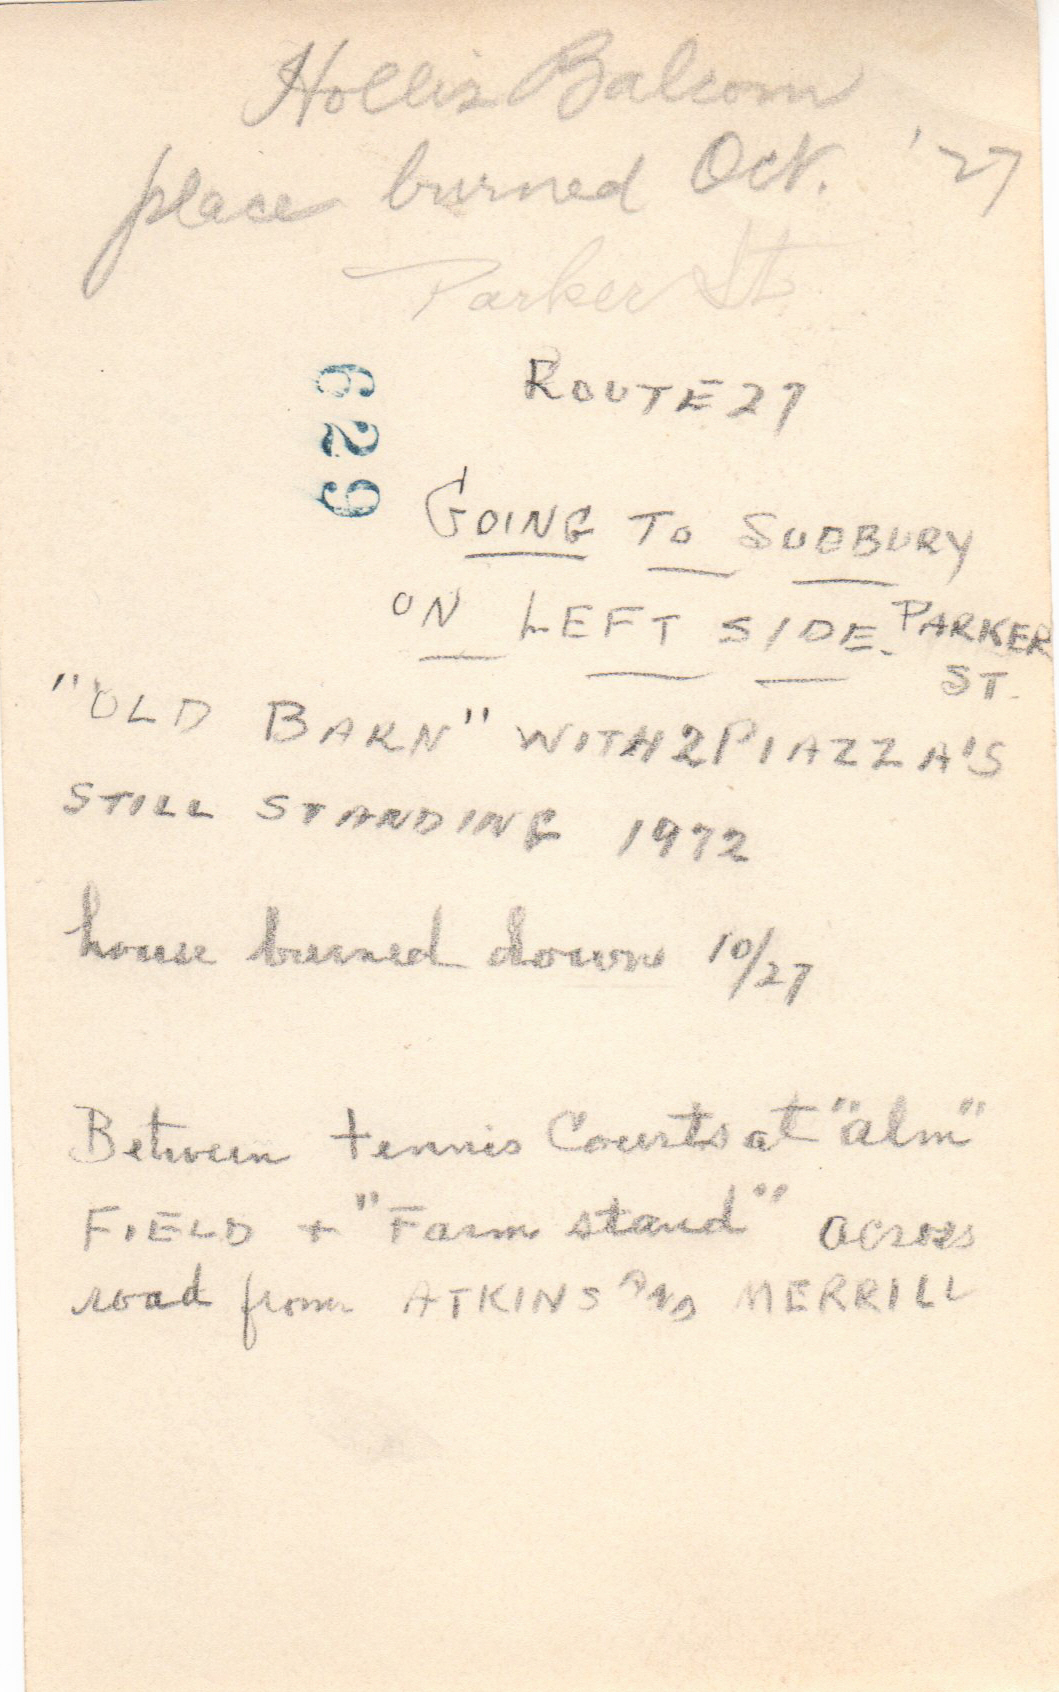 Hollis Balcom
place burned Oct. '27
Parker St
ROUTE 27
629
GOING TO SUDBURY
ON LEFT SIDE. PARKER
ST.
"OLD BARN" WITH 2 PIAZZA'S
STILL STANDING 1972
house burned down 10/27
Between tennis Courts at "alm"
FIELD + "Farm stand" across
road from ATKINS AND MERRILL